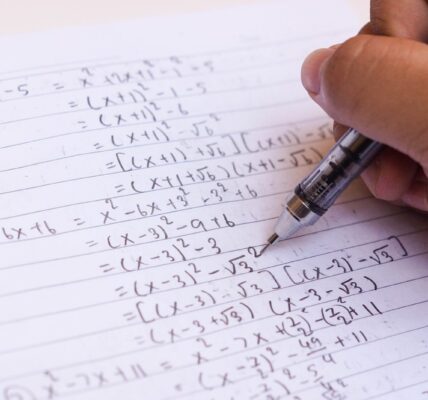 -5 = x²+2x+1²-1²-5
= (x+1)²-1-5
= (x+1)²-6
= (x+1)²-√6²
= [(x+1)+√6][(x+1)-√
= (x+1+√6)(x+1-√6)
6x+6 = x²-6x+3²-3²+6
= (x-3)²-9+6
= (x-3)²-3
= (x-3)²-√3²
= [(x-3)-√3][(x-3)-√3]
= (x-3+√3)(x-3-√3)
x²-7x+11 = x²-7x+(7/2)²-(7/2)²+11
= (x-7/2)²-49/4+11
= (x-7/2)²-5/4